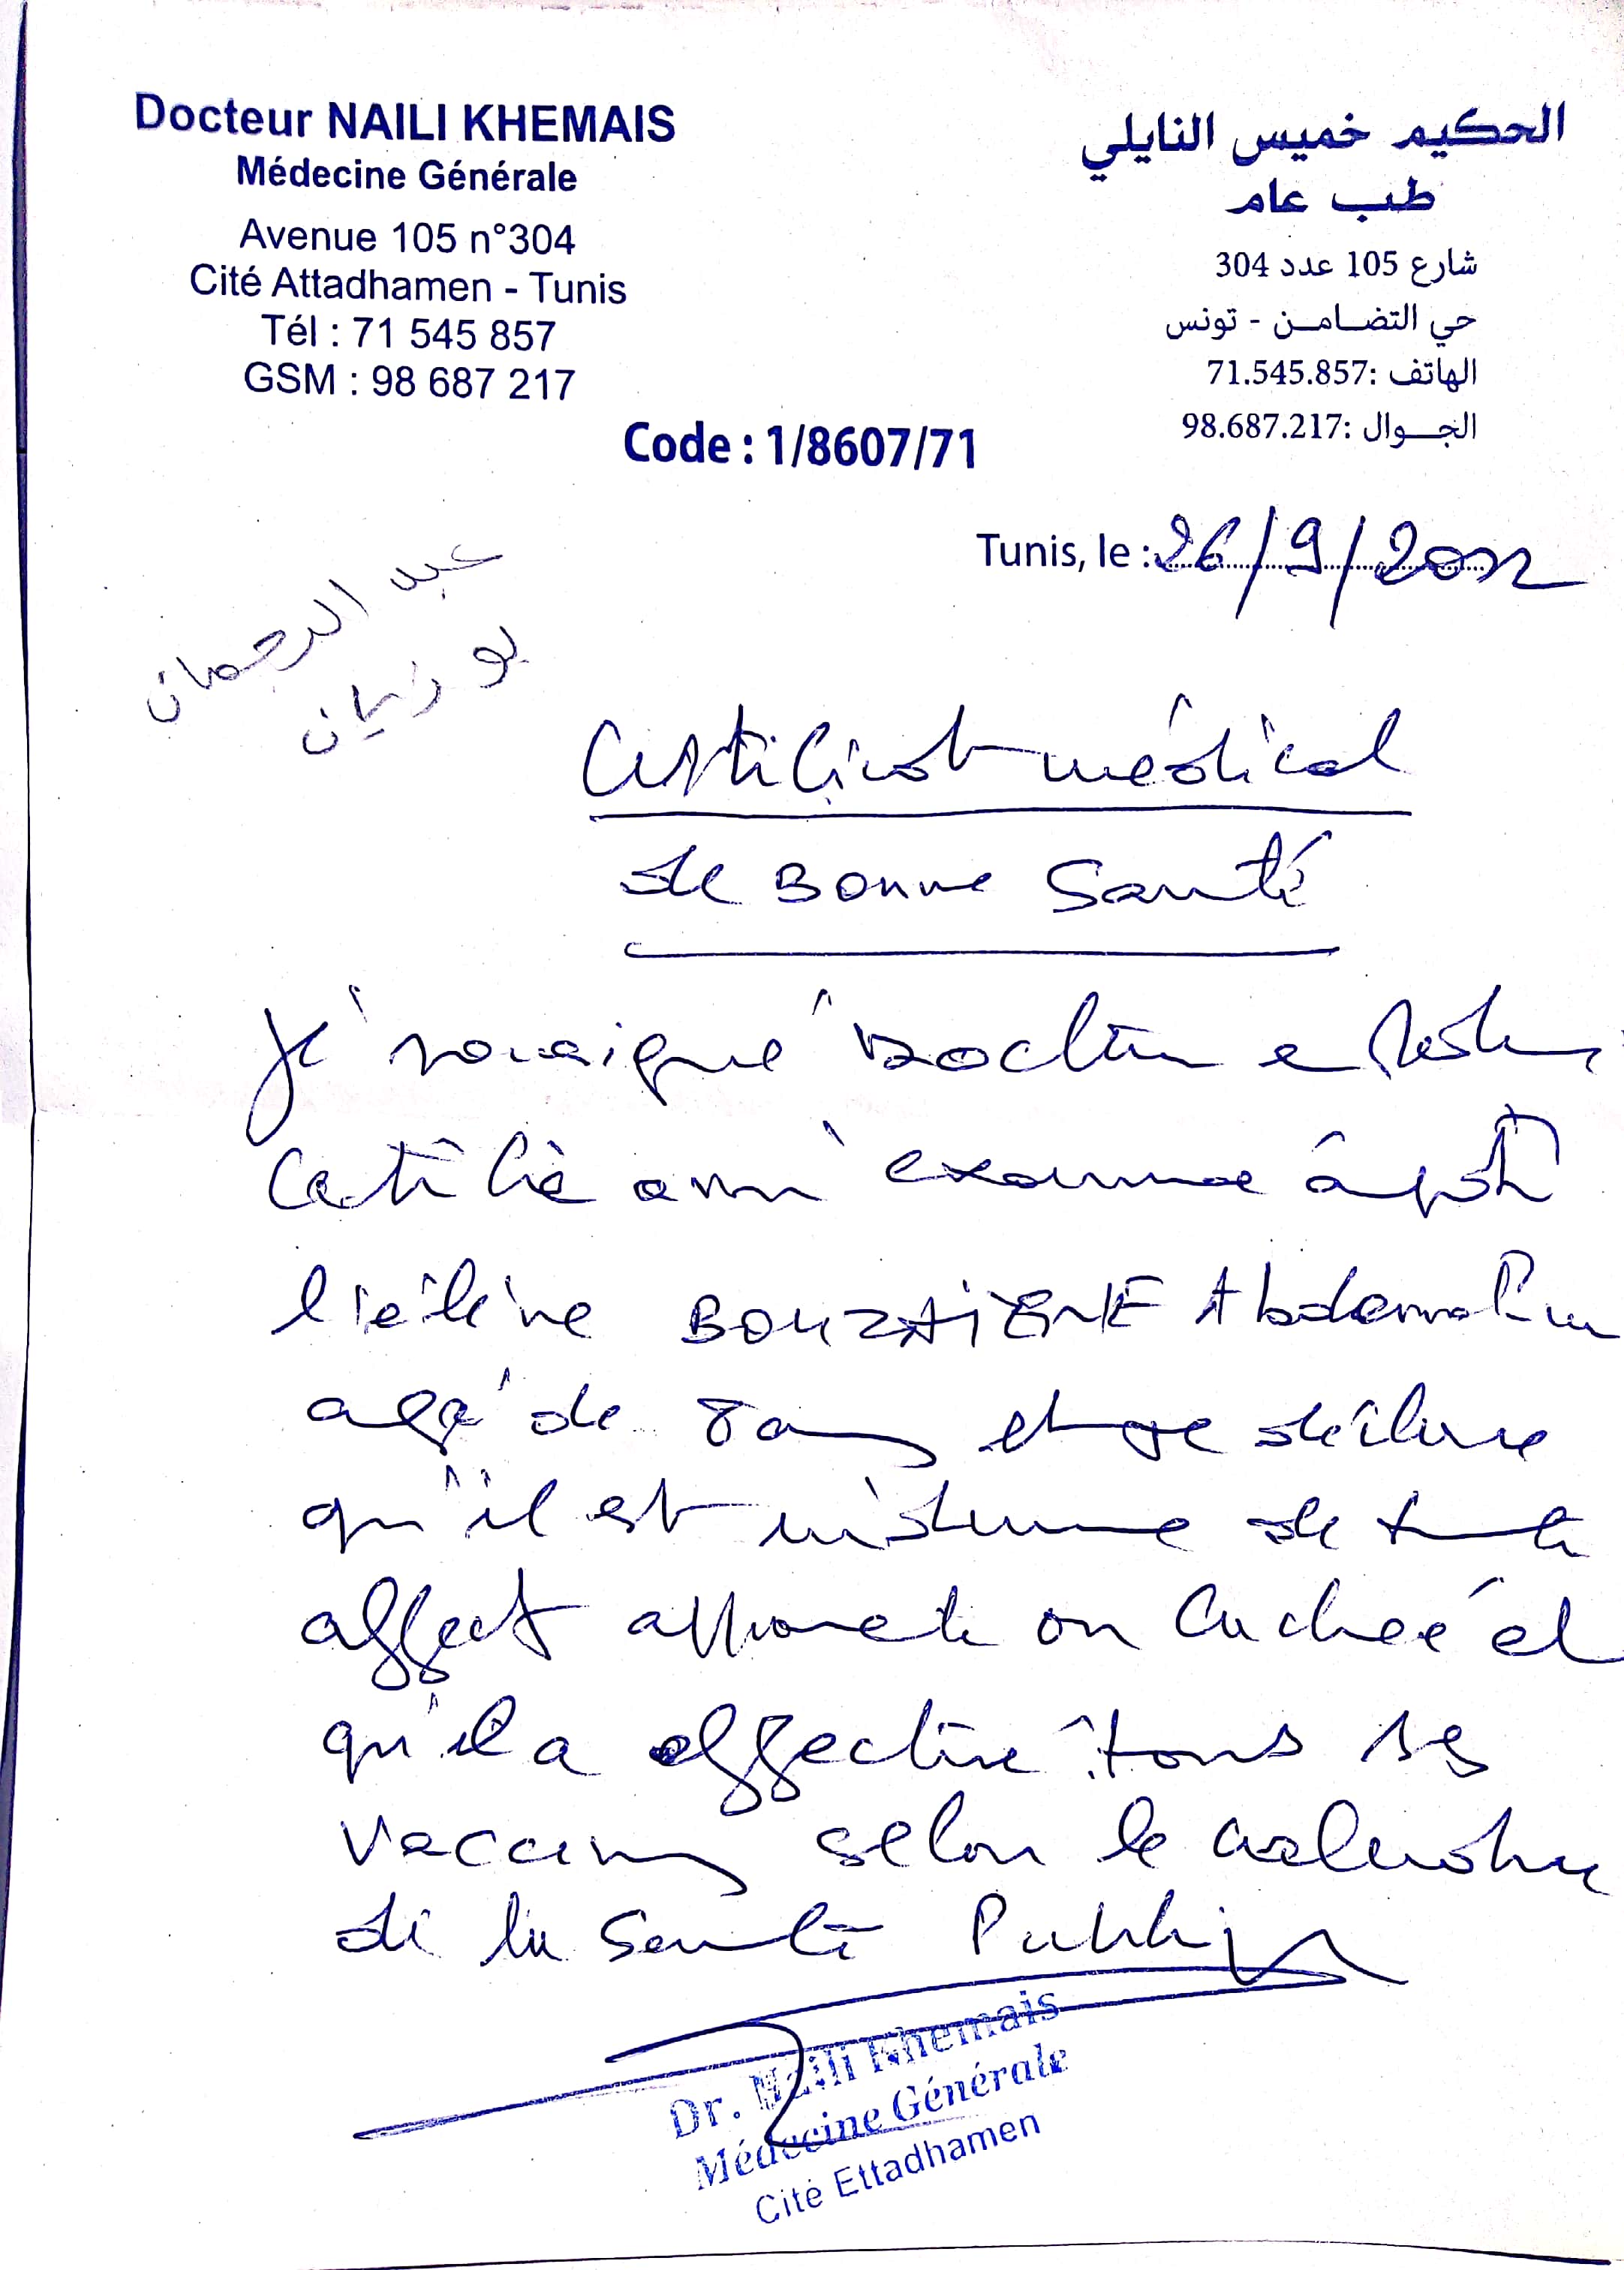 Docteur NAILI KHEMAIS
Médecine Générale
Avenue 105 n°304
Cité Attadhamen - Tunis
Tél : 71 545 857
GSM : 98 687 217
الحكيم خميس النايلي
طب عام
شارع 105 عدد 304
حي التضامن - تونس
الهاتف :71.545.857
الجوال :98.687.217
Code : 1/8607/71
Tunis, le : 26/9/2022
عبد الرحمان
بوزيان
Certificat médical
de Bonne Santé
Je soussigné Docteur
Certifie avoir examiné
l'élève BOUZAIENE Abderrahmen
agé de 8 ans et je déclare
qu'il est indemne de toute
affect apparente ou cachée et
qu'il a effectué tous ses
vaccins selon le calendrier
de la Santé Publique
Dr. Naili Khemais
Médecine Générale
Cité Ettadhamen